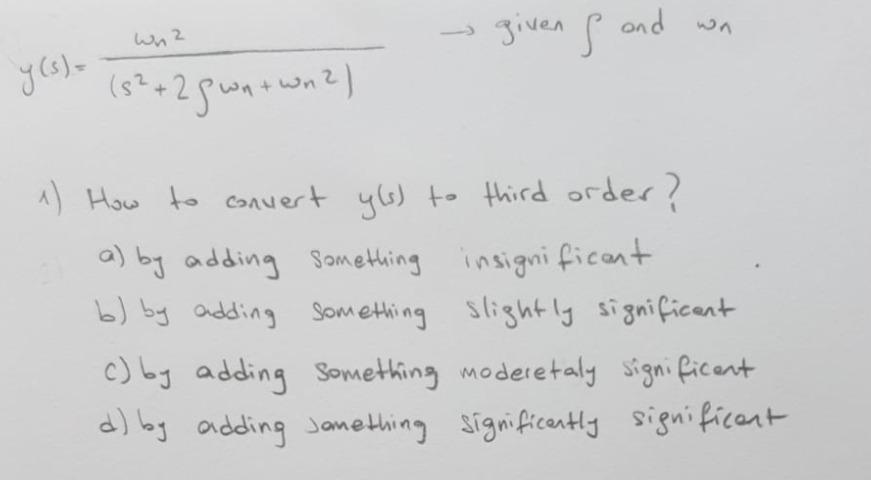 y(s) = ωn² / (s² + 2ζωn + ωn²) → given ζ and ωn
1) How to convert y(s) to third order?
a) by adding something insignificant
b) by adding something slightly significant
c) by adding something moderetaly significant
d) by adding something significantly significant